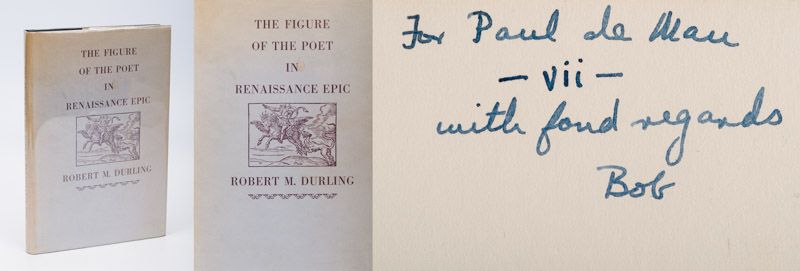 THE FIGURE
OF THE POET
IN
RENAISSANCE EPIC
ROBERT M. DURLING
THE FIGURE
OF THE POET
IN
RENAISSANCE EPIC
ROBERT M. DURLING
For Paul de Man
— vii —
with fond regards
Bob